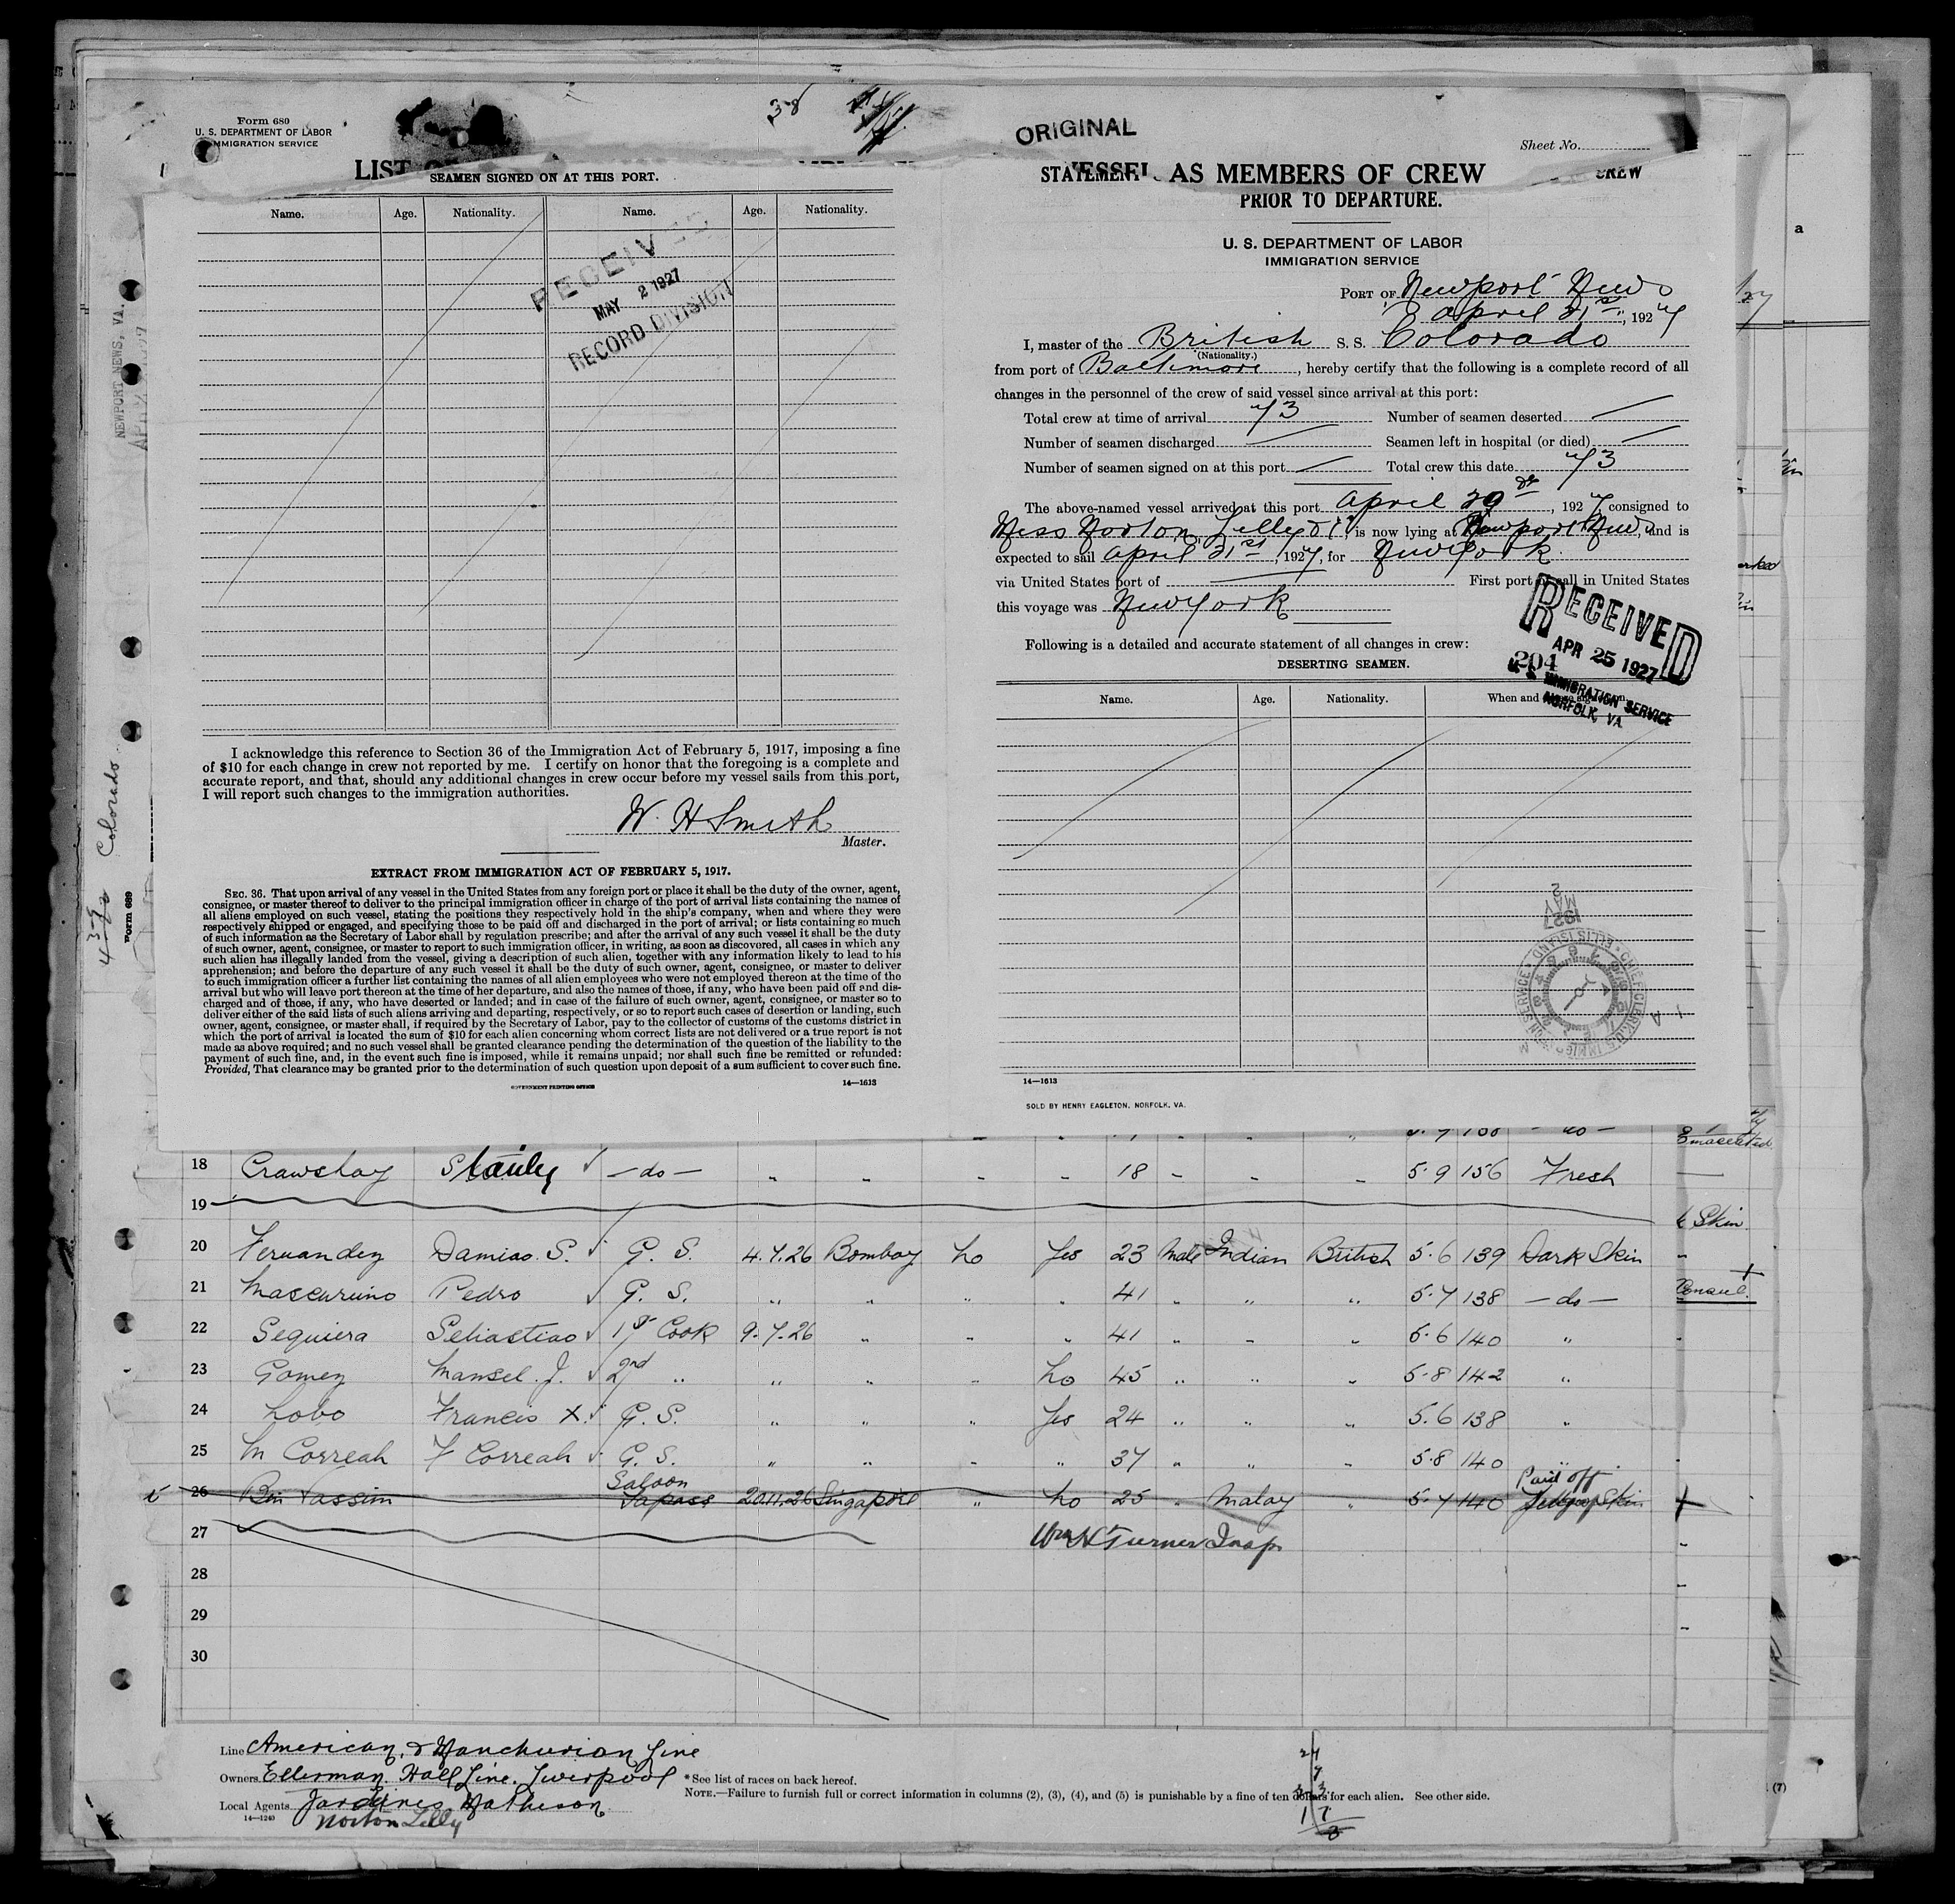 Form 680
U. S. DEPARTMENT OF LABOR
IMMIGRATION SERVICE
38
LIST OF
SEAMEN SIGNED ON AT THIS PORT.
Name. Age. Nationality. Name. Age. Nationality.
RECEIVED
MAY 2 1927
RECORD DIVISION
I acknowledge this reference to Section 36 of the Immigration Act of February 5, 1917, imposing a fine
of $10 for each change in crew not reported by me. I certify on honor that the foregoing is a complete and
accurate report, and that, should any additional changes in crew occur before my vessel sails from this port,
I will report such changes to the immigration authorities.
W. H Smith
Master.
EXTRACT FROM IMMIGRATION ACT OF FEBRUARY 5, 1917.
SEC. 36. That upon arrival of any vessel in the United States from any foreign port or place it shall be the duty of the owner, agent,
consignee, or master thereof to deliver to the principal immigration officer in charge of the port of arrival lists containing the names of
all aliens employed on such vessel, stating the positions they respectively hold in the ship's company, when and where they were
respectively shipped or engaged, and specifying those to be paid off and discharged in the port of arrival; or lists containing so much
of such information as the Secretary of Labor shall by regulation prescribe; and after the arrival of any such vessel it shall be the duty
of such owner, agent, consignee, or master to report to such immigration officer, in writing, as soon as discovered, all cases in which any
such alien has illegally landed from the vessel, giving a description of such alien, together with any information likely to lead to his
apprehension; and before the departure of any such vessel it shall be the duty of such owner, agent, consignee, or master to deliver
to such immigration officer a further list containing the names of all alien employees who were not employed thereon at the time of the
arrival but who will leave port thereon at the time of her departure, and also the names of those, if any, who have been paid off and dis-
charged and of those, if any, who have deserted or landed; and in case of the failure of such owner, agent, consignee, or master so to
deliver either of the said lists of such aliens arriving and departing, respectively, or so to report such cases of desertion or landing, such
owner, agent, consignee, or master shall, if required by the Secretary of Labor, pay to the collector of customs of the customs district in
which the port of arrival is located the sum of $10 for each alien concerning whom correct lists are not delivered or a true report is not
made as above required; and no such vessel shall be granted clearance pending the determination of the question of the liability to the
payment of such fine, and, in the event such fine is imposed, while it remains unpaid; nor shall such fine be remitted or refunded:
Provided, That clearance may be granted prior to the determination of such question upon deposit of a sum sufficient to cover such fine.
GOVERNMENT PRINTING OFFICE 14—1613
ORIGINAL
Sheet No.
STATEMENT VESSEL AS MEMBERS OF CREW CREW
PRIOR TO DEPARTURE.
U. S. DEPARTMENT OF LABOR
IMMIGRATION SERVICE
PORT OF Newport News
April 21st, 1927
I, master of the British S. S. Colorado
(Nationality.)
from port of Baltimore, hereby certify that the following is a complete record of all
changes in the personnel of the crew of said vessel since arrival at this port:
Total crew at time of arrival 73 Number of seamen deserted —
Number of seamen discharged — Seamen left in hospital (or died) —
Number of seamen signed on at this port — Total crew this date 73
The above-named vessel arrived at this port April 20th, 1927, consigned to
Mess Norton, Lilly & Co is now lying at Newport News, and is
expected to sail April 21st, 1927, for New York
via United States port of — First port of call in United States
this voyage was New York
Following is a detailed and accurate statement of all changes in crew:
RECEIVED
APR 25 1927
204
U. S. IMMIGRATION SERVICE
NORFOLK, VA.
DESERTING SEAMEN.
Name. Age. Nationality. When and
1927
MAY
2
CHIEF CLERK, U.S. IMMIGRATION SERVICE • ELLIS ISLAND
14—1613
SOLD BY HENRY EAGLETON, NORFOLK, VA.
NEWPORT NEWS, VA.
Colorado
Form 689
Emaciated
18 Crawshay Stanley ✓ — do — " " " " 18 " " " 5.9 156 Fresh
19
20 Fernandez Damiao. S. ✓ G. S. 4.7.26 Bombay No Yes 23 Male Indian British 5.6 139 Dark Skin
21 Mascurino Pedro ✓ G. S. " " " " 41 " " " 5.7 138 — do —
22 Sequiera Sebastiao ✓ 1st Cook 9.7.26 " " " 41 " " " 5.6 140 "
23 Gomez Mansel. J. ✓ 2nd " " " " No 45 " " " 5.8 142 "
24 Lobo Francis X. ✓ G. S. " " " Yes 24 " " " 5.6 138 "
25 M Correah F Correah ✓ G. S. " " " " 37 " " " 5.8 140 "
26 Bin Kassim Saloon Topass 20.11.26 Singapore " No 25 " Malay " 5.7 140 Paid off Yellow Skin
27
Wm H Turner Insp.
28
29
30
Line American & Manchurian Line
Owners Ellerman. Hall Line. Liverpool
Local Agents Jardines Matheson
Norton Lilly
14—1240
*See list of races on back hereof.
NOTE.—Failure to furnish full or correct information in columns (2), (3), (4), and (5) is punishable by a fine of ten dollars for each alien. See other side.
(7)